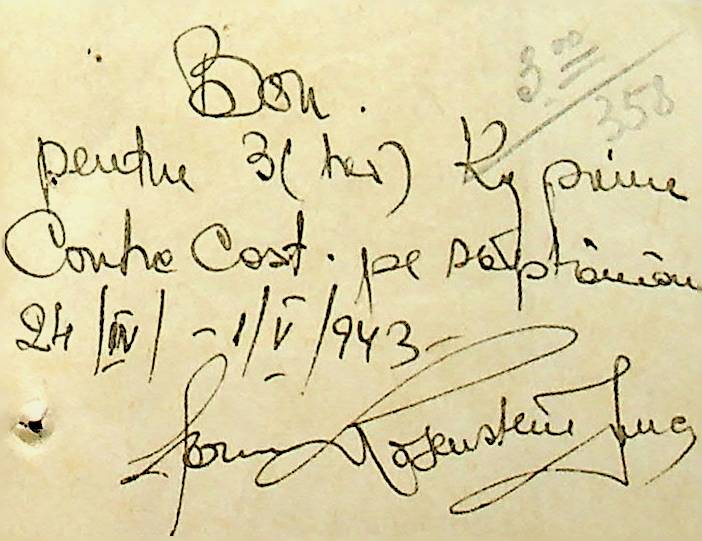 Bon.
3.00
358
pentru 3 (trei) Kg pâine
Contra Cost. pe săptămâna
24/IV/-1/V/943-
Rosenstein